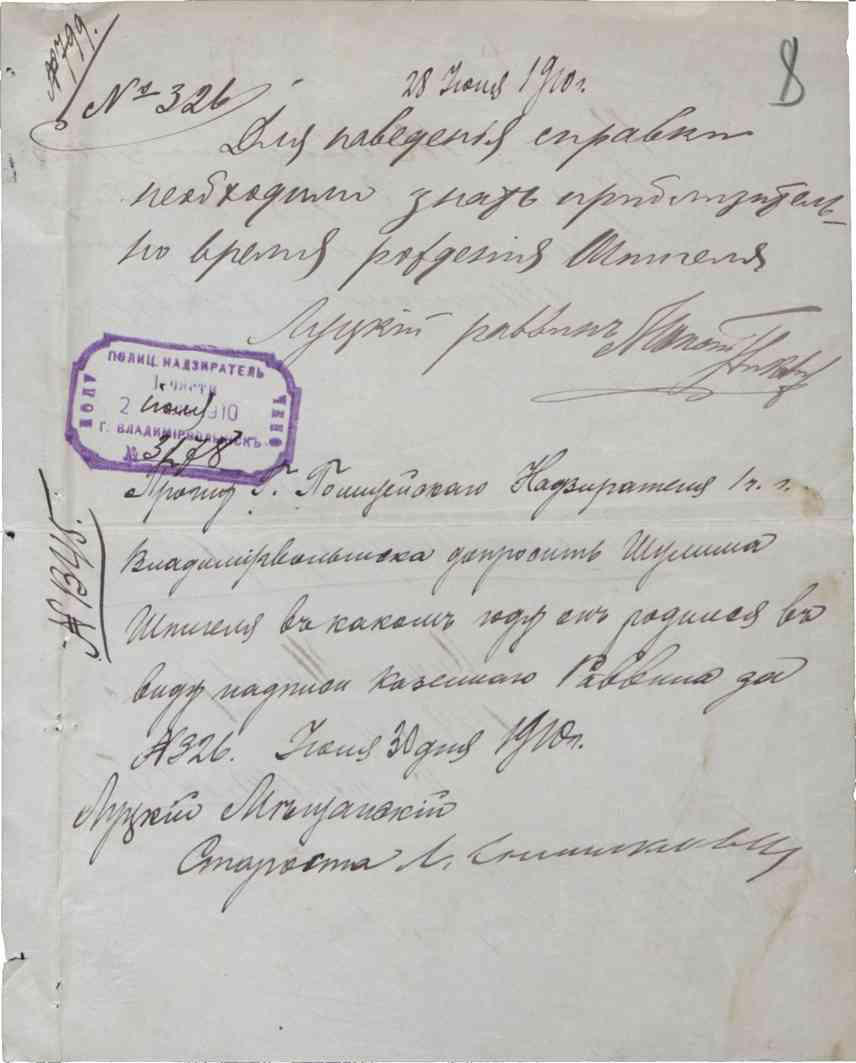 №799.
№ 326
28 Июня 1910 г.
8
Для наведенія справки
необходимо знать приблизитель-
но время рожденія Шпигеля
Луцкій раввинъ
ПОЛИЦ. НАДЗИРАТЕЛЬ
1 ЧАСТИ
ПОЛУЧЕНО
2 июля 1910
Г. ВЛАДИМІРВОЛЫНСКЪ
№ 3178
№1345.
Прошу Г. Полицейскаго Надзирателя 1 ч. г.
Владимірволынска допросить Шулима
Шпигеля въ какомъ году онъ родился въ
виду надписи казеннаго Раввина за
№326. Июня 30 дня 1910 г.
Луцкій Мѣщанскій
Староста